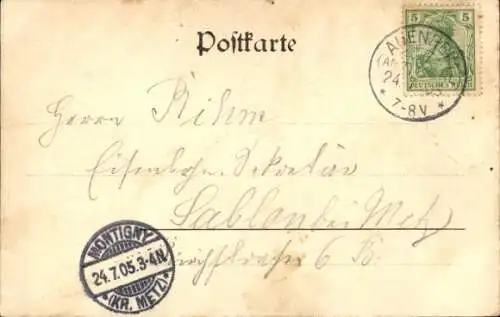 Postkarte
5 5
DEUTSCHES REICH
24.
* 7-8 V *
Herrn Böhm
Eisenbahn-Sekretär
Sablon bei Metz
Kirchstrasse 6 B.
MONTIGNY
24.7.05.3-4N
*(KR. METZ)*